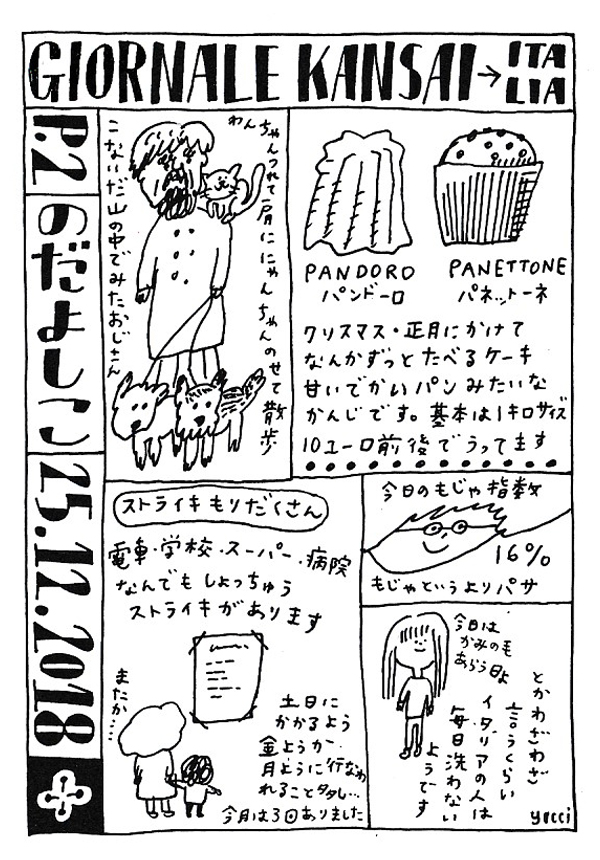 GIORNALE KANSAI→ITALIA
P.2
のだよしこ
25.12.2018
わんちゃんつれて肩ににゃんちゃんのせて散歩
こないだ山の中でみたおじさん
PANDORO
パンドーロ
PANETTONE
パネットーネ
クリスマス・正月にかけて
なんかずっとたべるケーキ
甘いでかいパンみたいな
かんじです。基本は1キロサイズ
10ユーロ前後でうってます
ストライキもりだくさん
電車・学校・スーパー・病院
なんでもしょっちゅう
ストライキがあります
またか……
土日に
かかるよう
金ようか
月ように行なわ
れること多し…
今月は3回ありました
今日のもじゃ指数
16%
もじゃというよりパサ
今日は
かみの毛
あらう日よ
とかわざわざ
言うくらい
イタリアの人は
毎日洗わない
ようです
yocci